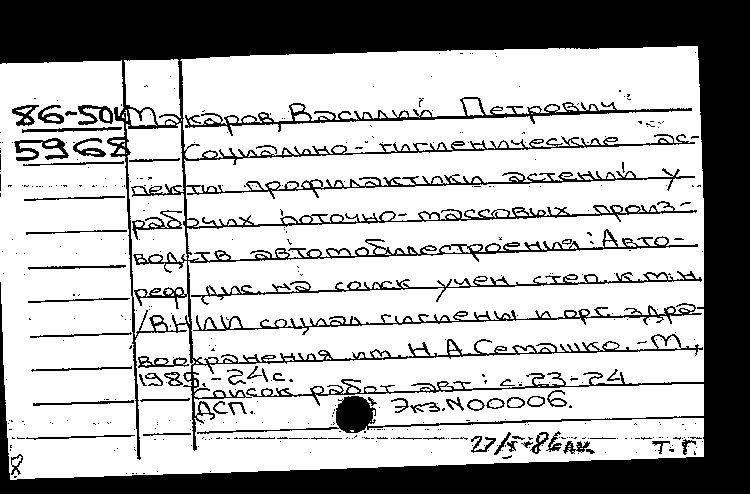 86-504 Макаров, Василий Петрович
5968 Социально-гигиенические ас-
пекты профилактики астений у
рабочих поточно-массовых произ-
водств автомобилестроения: Авто-
реф. дис. на соиск учен. степ. к.м.н.
/ВНИИ социал. гигиены и орг. здра-
воохранения им. Н.А.Семашко. - М.,
1985. - 24 с.
Список работ авт: с.23-24
ДСП. Экз.N00006.
27/X-86 Т.Г.